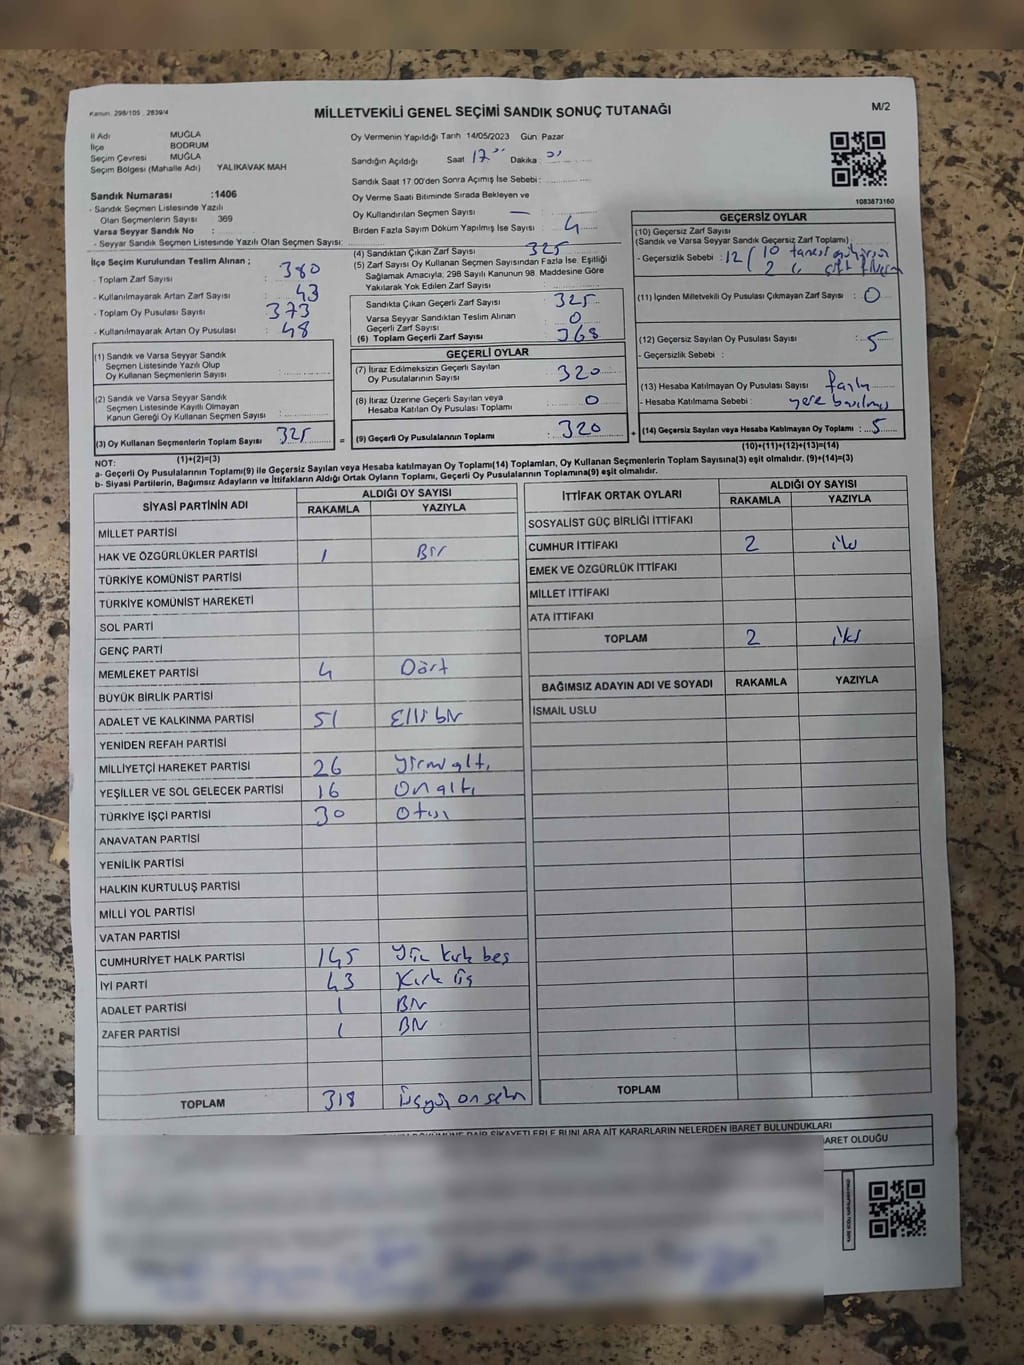 Kanun: 298/105 2839/4
MİLLETVEKİLİ GENEL SEÇİMİ SANDIK SONUÇ TUTANAĞI
M/2
İl Adı MUĞLA
İlçe BODRUM
Seçim Çevresi MUĞLA
Seçim Bölgesi (Mahalle Adı) YALIKAVAK MAH
Sandık Numarası :1406
- Sandık Seçmen Listesinde Yazılı
Olan Seçmenlerin Sayısı 369
Varsa Seyyar Sandık No :
- Seyyar Sandık Seçmen Listesinde Yazılı Olan Seçmen Sayısı:
Oy Vermenin Yapıldığı Tarih 14/05/2023 Gün Pazar
Sandığın Açıldığı Saat 17 Dakika :
Sandık Saat 17.00'den Sonra Açımış İse Sebebi :
Oy Verme Saati Bitiminde Sırada Bekleyen ve
Oy Kullandırılan Seçmen Sayısı —
Birden Fazla Sayım Döküm Yapılmış İse Sayısı : 4
1083873160
İlçe Seçim Kurulundan Teslim Alınan ;
- Toplam Zarf Sayısı : 380
- Kullanılmayarak Artan Zarf Sayısı : 43
- Toplam Oy Pusulası Sayısı 373
- Kullanılmayarak Artan Oy Pusulası : 48
(1) Sandık ve Varsa Seyyar Sandık
Seçmen Listesinde Yazılı Olup
Oy Kullanan Seçmenlerin Sayısı :
(2) Sandık ve Varsa Seyyar Sandık
Seçmen Listesinde Kayıtlı Olmayan
Kanun Gereği Oy Kullanan Seçmen Sayısı :
(3) Oy Kullanan Seçmenlerin Toplam Sayısı 325
(1)+(2)=(3)
(4) Sandıktan Çıkan Zarf Sayısı : 325
(5) Zarf Sayısı Oy Kullanan Seçmen Sayısından Fazla İse. Eşitliği
Sağlamak Amacıyla; 298 Sayılı Kanunun 98. Maddesine Göre
Yakılarak Yok Edilen Zarf Sayısı :
Sandıkta Çıkan Geçerli Zarf Sayısı : 325
Varsa Seyyar Sandıktan Teslim Alınan
Geçerli Zarf Sayısı : 0
(6) Toplam Geçerli Zarf Sayısı : 368
GEÇERLİ OYLAR
(7) İtiraz Edilmeksizin Geçerli Sayılan
Oy Pusulalarının Sayısı : 320
(8) İtiraz Üzerine Geçerli Sayılan veya
Hesaba Katılan Oy Pusulası Toplamı : 0
= (9) Geçerli Oy Pusulalarının Toplamı : 320
GEÇERSİZ OYLAR
(10) Geçersiz Zarf Sayısı
(Sandık ve Varsa Seyyar Sandık Geçersiz Zarf Toplamı) :
- Geçersiz Sebebi : 12 ( 10 tanesi
2
(11) İçinden Milletvekili Oy Pusulası Çıkmayan Zarf Sayısı : 0
(12) Geçersiz Sayılan Oy Pusulası Sayısı : 5
- Geçersizlik Sebebi :
(13) Hesaba Katılmayan Oy Pusulası Sayısı : fazla
- Hesaba Katılmama Sebebi : yere basılmış
+ (14) Geçersiz Sayılan veya Hesaba Katılmayan Oy Toplamı : 5
(10)+(11)+(12)+(13)=(14)
NOT:
a- Geçerli Oy Pusulalarının Toplamı(9) ile Geçersiz Sayılan veya Hesaba katılmayan Oy Toplamı(14) Toplamları, Oy Kullanan Seçmenlerin Toplam Sayısına(3) eşit olmalıdır. (9)+(14)=(3)
b- Siyasi Partilerin, Bağımsız Adayların ve İttifakların Aldığı Ortak Oyların Toplamı, Geçerli Oy Pusulalarının Toplamına(9) eşit olmalıdır.
SİYASİ PARTİNİN ADI ALDIĞI OY SAYISI
RAKAMLA YAZIYLA
MİLLET PARTİSİ
HAK VE ÖZGÜRLÜKLER PARTİSİ 1 Bir
TÜRKİYE KOMÜNİST PARTİSİ
TÜRKİYE KOMÜNİST HAREKETİ
SOL PARTİ
GENÇ PARTİ
MEMLEKET PARTİSİ 4 Dört
BÜYÜK BİRLİK PARTİSİ
ADALET VE KALKINMA PARTİSİ 51 Elli bir
YENİDEN REFAH PARTİSİ
MİLLİYETÇİ HAREKET PARTİSİ 26 Yirmi altı
YEŞİLLER VE SOL GELECEK PARTİSİ 16 On altı
TÜRKİYE İŞÇİ PARTİSİ 30 Otuz
ANAVATAN PARTİSİ
YENİLİK PARTİSİ
HALKIN KURTULUŞ PARTİSİ
MİLLİ YOL PARTİSİ
VATAN PARTİSİ
CUMHURİYET HALK PARTİSİ 145 Yüz kırk beş
İYİ PARTİ 43 Kırk üç
ADALET PARTİSİ 1 Bir
ZAFER PARTİSİ 1 Bir
TOPLAM 318 Üçyüz on sekiz
İTTİFAK ORTAK OYLARI ALDIĞI OY SAYISI
RAKAMLA YAZIYLA
SOSYALİST GÜÇ BİRLİĞİ İTTİFAKI
CUMHUR İTTİFAKI 2 iki
EMEK VE ÖZGÜRLÜK İTTİFAKI
MİLLET İTTİFAKI
ATA İTTİFAKI
TOPLAM 2 iki
BAĞIMSIZ ADAYIN ADI VE SOYADI RAKAMLA YAZIYLA
İSMAİL USLU
TOPLAM
DÖKÜMÜNE DAİR ŞİKAYETLERLE BUNLARA AİT KARARLARIN NELERDEN İBARET BULUNDUKLARI
İBARET OLDUĞU